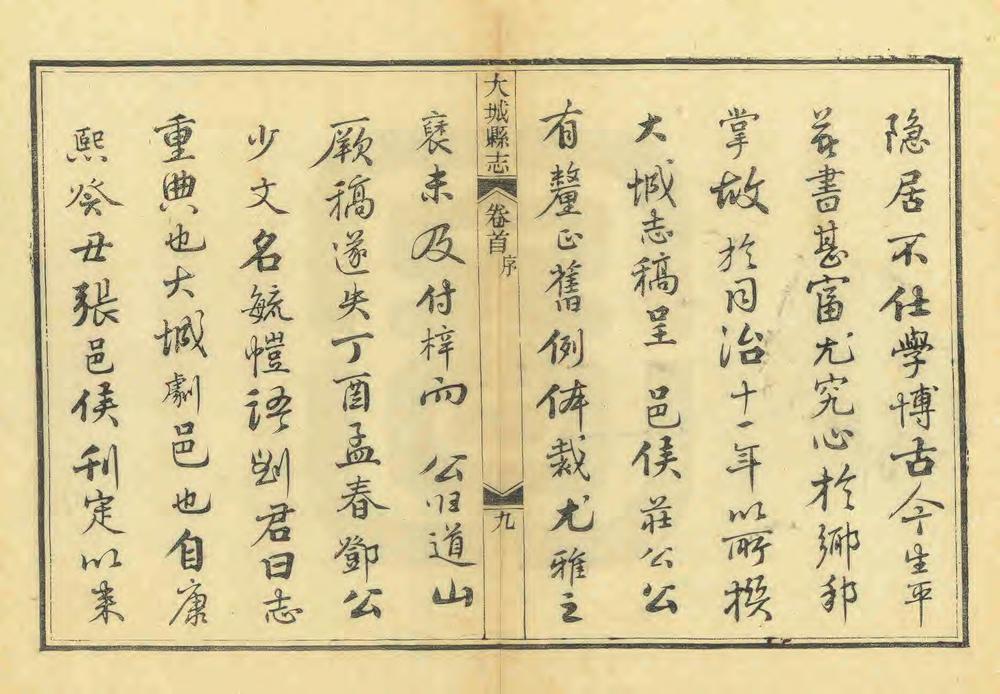 隐居不仕學博古今生平
著書甚富尤究心於鄉邦
掌故於同治十一年以所撰
大城志稿呈 邑侯莊公公
有釐正舊例体裁尤雅之
大城縣志 卷首 序 九
褒未及付梓而 公归道山
厥稿遂失丁酉孟春鄧公
少文名毓愷语刘君曰志
重典也大城劇邑也自康
熙癸丑張邑侯刊定以来